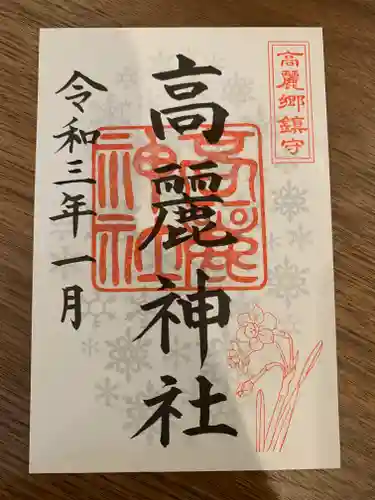 高麗郷鎮守
高麗神社
令和三年一月
高麗神社